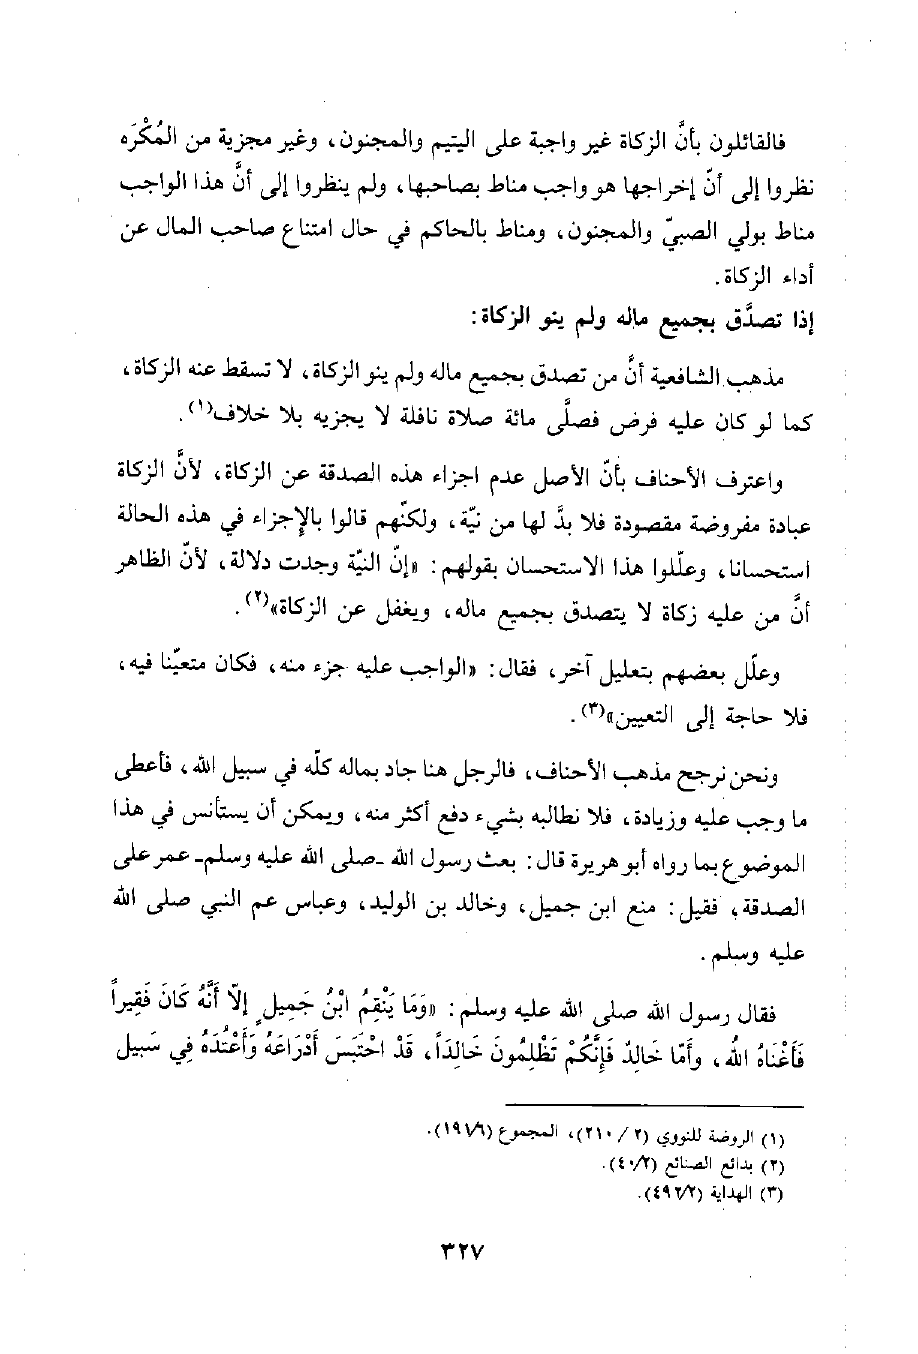 فالقائلون بأنَّ الزكاة غير واجبة على اليتيم والمجنون، وغير مجزية من المُكْرَه
نظروا إلى أنّ إخراجها هو واجب مناط بصاحبها، ولم ينظروا إلى أنَّ هذا الواجب
مناط بولي الصبيّ والمجنون، ومناط بالحاكم في حال امتناع صاحب المال عن
أداء الزكاة.
إذا تصدَّق بجميع ماله ولم ينو الزكاة:
مذهب الشافعية أنَّ من تصدق بجميع ماله ولم ينو الزكاة، لا تسقط عنه الزكاة،
كما لو كان عليه فرض فصلَّى مائة صلاة نافلة لا يجزيه بلا خلاف(١).
واعترف الأحناف بأنّ الأصل عدم اجزاء هذه الصدقة عن الزكاة، لأنَّ الزكاة
عبادة مفروضة مقصودة فلا بدَّ لها من نيّة، ولكنّهم قالوا بالإجزاء في هذه الحالة
استحسانا، وعلّلوا هذا الاستحسان بقولهم: «إنّ النيّة وجدت دلالة، لأنّ الظاهر
أنَّ من عليه زكاة لا يتصدق بجميع ماله، ويغفل عن الزكاة»(٢).
وعلّل بعضهم بتعليل آخر، فقال: «الواجب عليه جزء منه، فكان متعيّنا فيه،
فلا حاجة إلى التعيين»(٣).
ونحن نرجح مذهب الأحناف، فالرجل هنا جاد بماله كلّه في سبيل الله، فأعطى
ما وجب عليه وزيادة، فلا نطالبه بشيء دفع أكثر منه، ويمكن أن يستأنس في هذا
الموضوع بما رواه أبو هريرة قال: بعث رسول الله -صلى الله عليه وسلم- عمر على
الصدقة، فقيل: منع ابن جميل، وخالد بن الوليد، وعباس عم النبي صلى الله
عليه وسلم.
فقال رسول الله صلى الله عليه وسلم: «وَمَا يَنْقِمُ ابْنُ جَمِيلٍ إلّا أَنَّهُ كَانَ فَقِيراً
فَأَغْنَاهُ اللهُ، وأَمّا خَالِدٌ فَإِنَّكُمْ تَظْلِمُونَ خَالِداً، قَدْ احْتَبَسَ أَدْرَاعَهُ وَأَعْتُدَهُ فِي سَبِيل
(١) الروضة للنووي (٢/ ٢١٠)، المجموع (١٩١/٦).
(٢) بدائع الصنائع (٤٠/٢).
(٣) الهداية (٤٩٢/٢).
٣٢٧